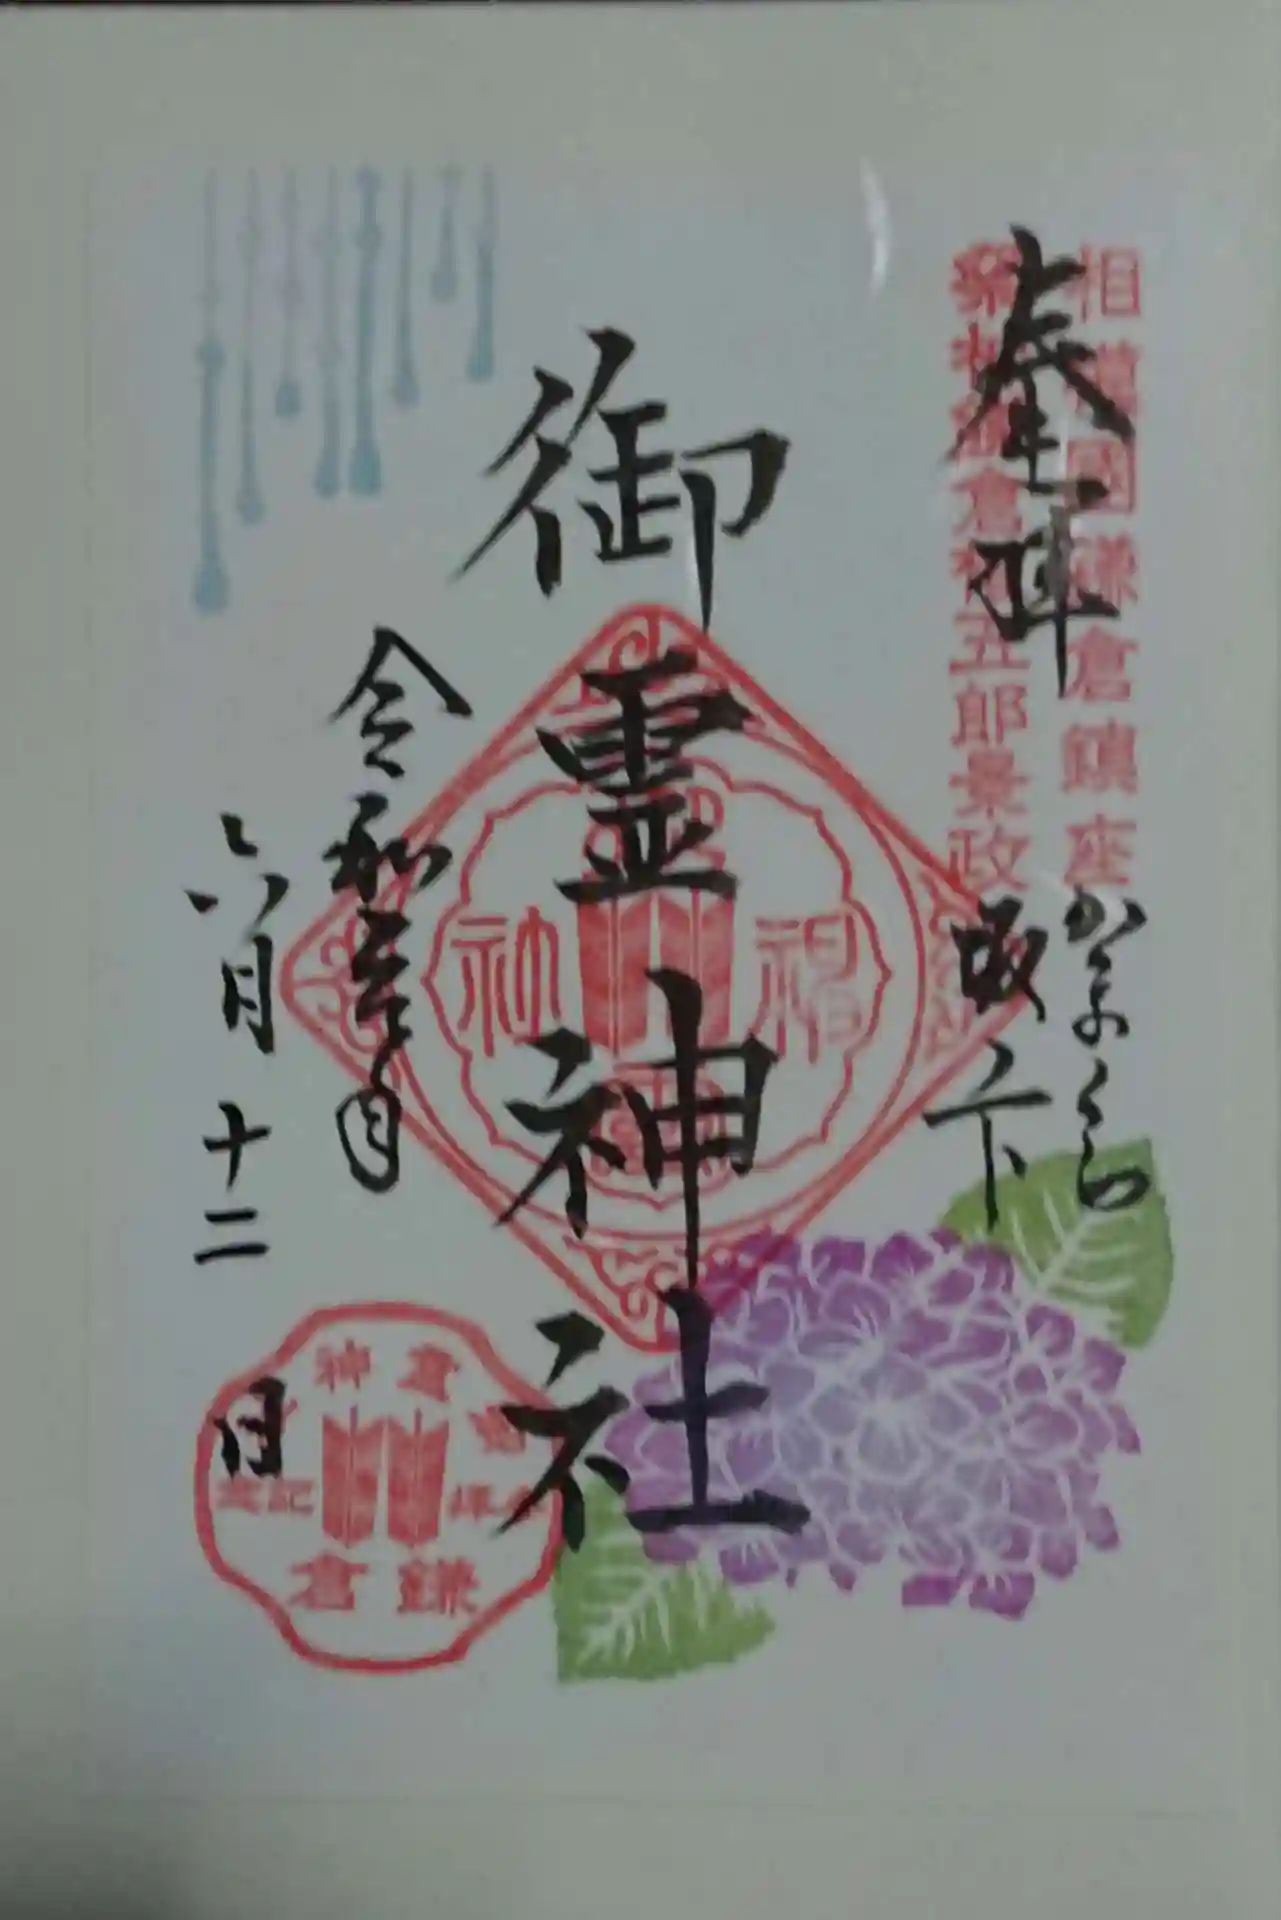 奉拝
相模國鎌倉鎮座
祭神鎌倉権五郎景政
かまくら
坂ノ下
御霊神社
令和五年
六月十二日
鎌倉